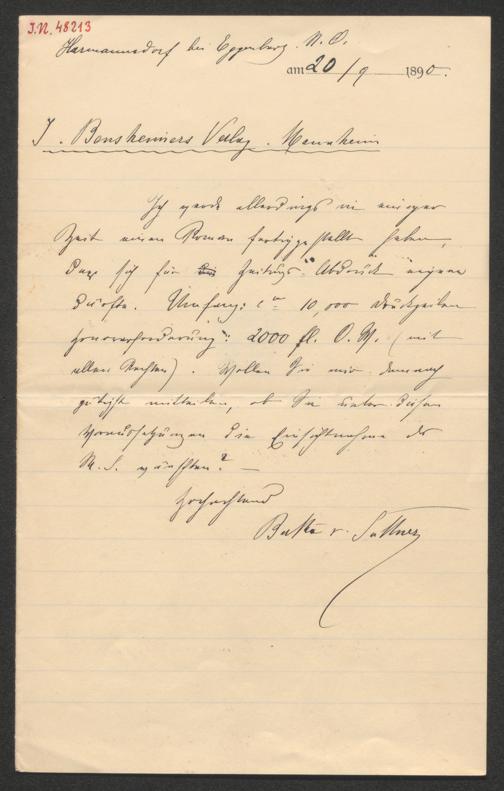 J.N. 48213
Harmannsdorf bei Eggenburg. N. Ö.
am 20/9 1890.
J. Bensheimers Verlag. Mannheim
Ich werde allerdings in einiger
Zeit einen Roman fertiggestellt haben,
der sich für Zeitungs-Abdruck eignen
dürfte. Umfang: ca 10,000 Druckzeilen
Honorarforderung: 2000 fl. Ö. W. (mit
allen Rechten). Wollen Sie mir demnach
gütigst mitteilen, ob Sie unter diesen
Voraussetzungen die Einsichtnahme des
M. S. wünschten? —
Hochachtend
Bertha v. Suttner